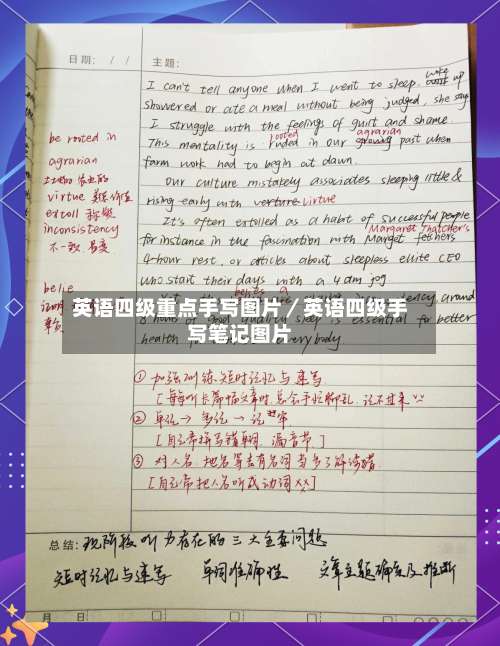 日期: / / 主题:
I can't tell anyone when I went to sleep, woke up
showered or ate a meal without being judged, she says
I struggle with the feelings of guilt and shame.
rooted agrarian
This mentality is ruded in our growing past when
farm work had to begin at dawn.
Our culture mistakely associates sleeping little &
rising early with verture. virtue
It's often extolled as a habit of successful people
Margaret Thatcher's
for instance in the fascination with Marget fetchers
4-hour rest, or articles about sleepless elite CEO
who start their days with a 4 am jog
8 hours of good quality sleep is essential for better
health for everybody
be rooted in
agrarian
土地的 农业的
virtue 美德 价值
extoll 称赞
inconsistency
不一致 易变
belie
英语四级重点手写图片/英语四级手
写笔记图片
① 加强训练短时记忆与速写
[每每听长篇幅文章时总会手忙脚乱,记不过来]
② 单记 → 多记 → 记 带
[自己常拼写错单词 漏音节]
③ 对人名、地名等专有名词 多了解读错
[自己常把人名听成动词 XX]
总结: 现阶段听力存在的三大主要问题
短时记忆与速写 单词准确性 文章主题确定及推断
月 日